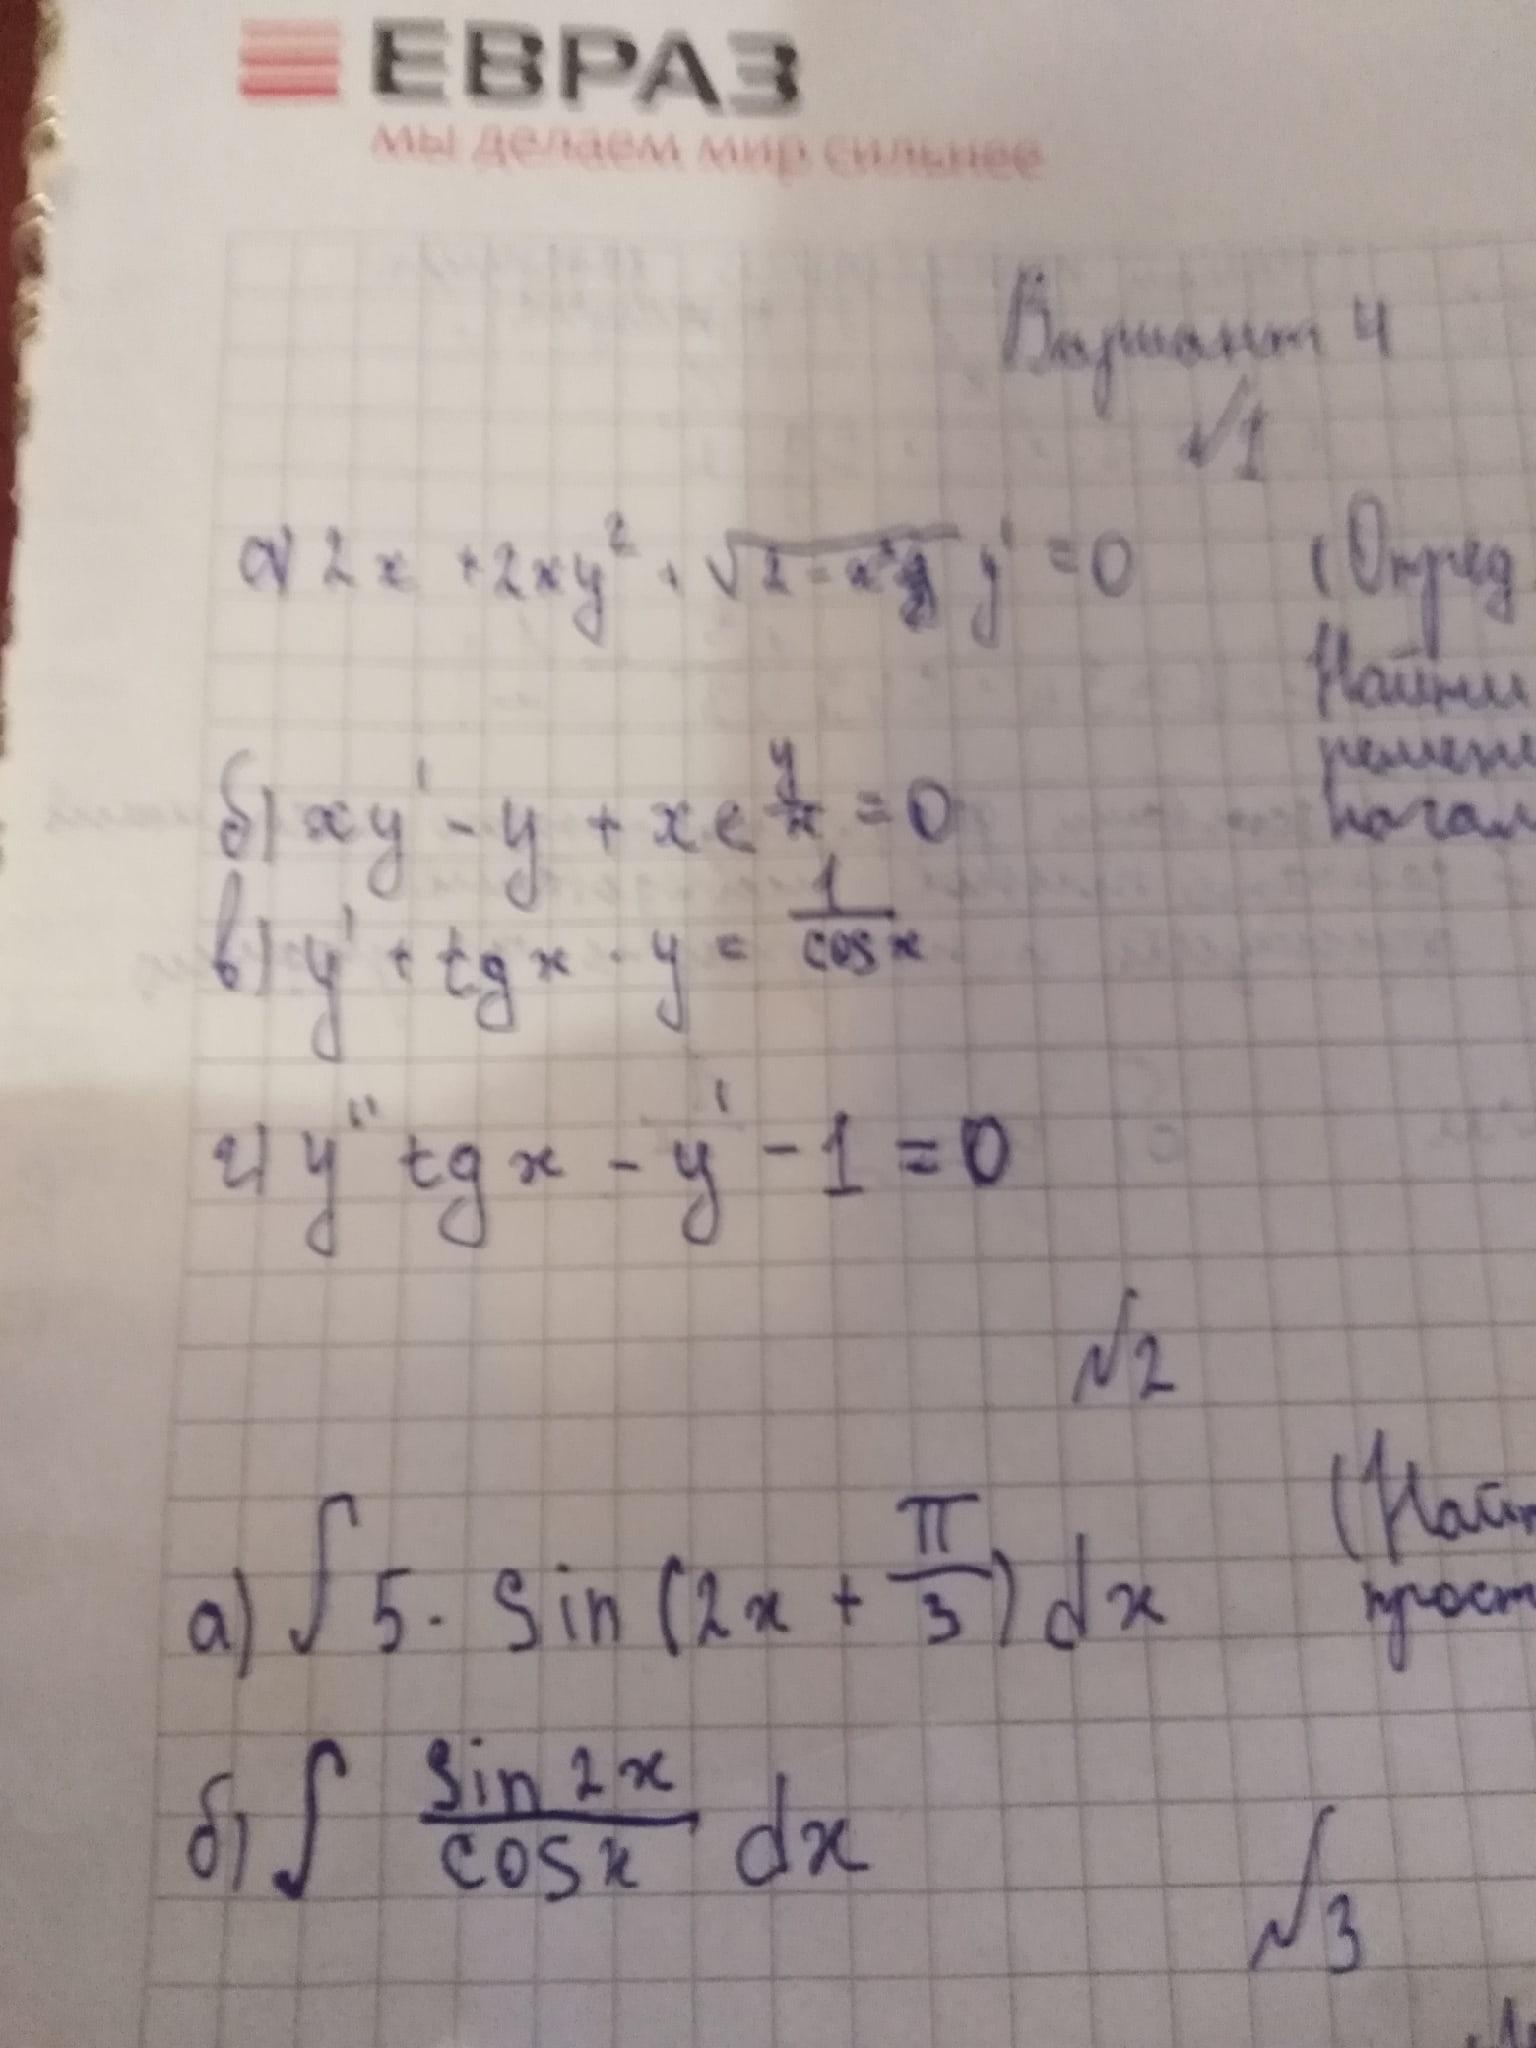 ЕВРАЗ
мы делаем мир сильнее
Вариант 4
№1
а) 2x + 2xy² + √(2 - x²) y' = 0 (Опред
Найти
решени
начал
б) xy' - y + xe^(y/x) = 0
в) y' + tg x · y = 1/cos x
г) y'' tg x - y' - 1 = 0
№2
а) ∫ 5 · sin (2x + π/3) dx (Найт
прост
б) ∫ sin 2x/cos x dx
№3